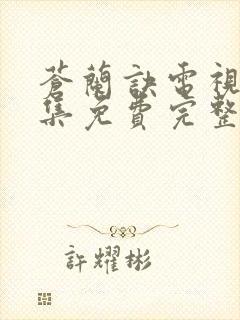 蒼蘭訣電視
集免費完整
許耀彬